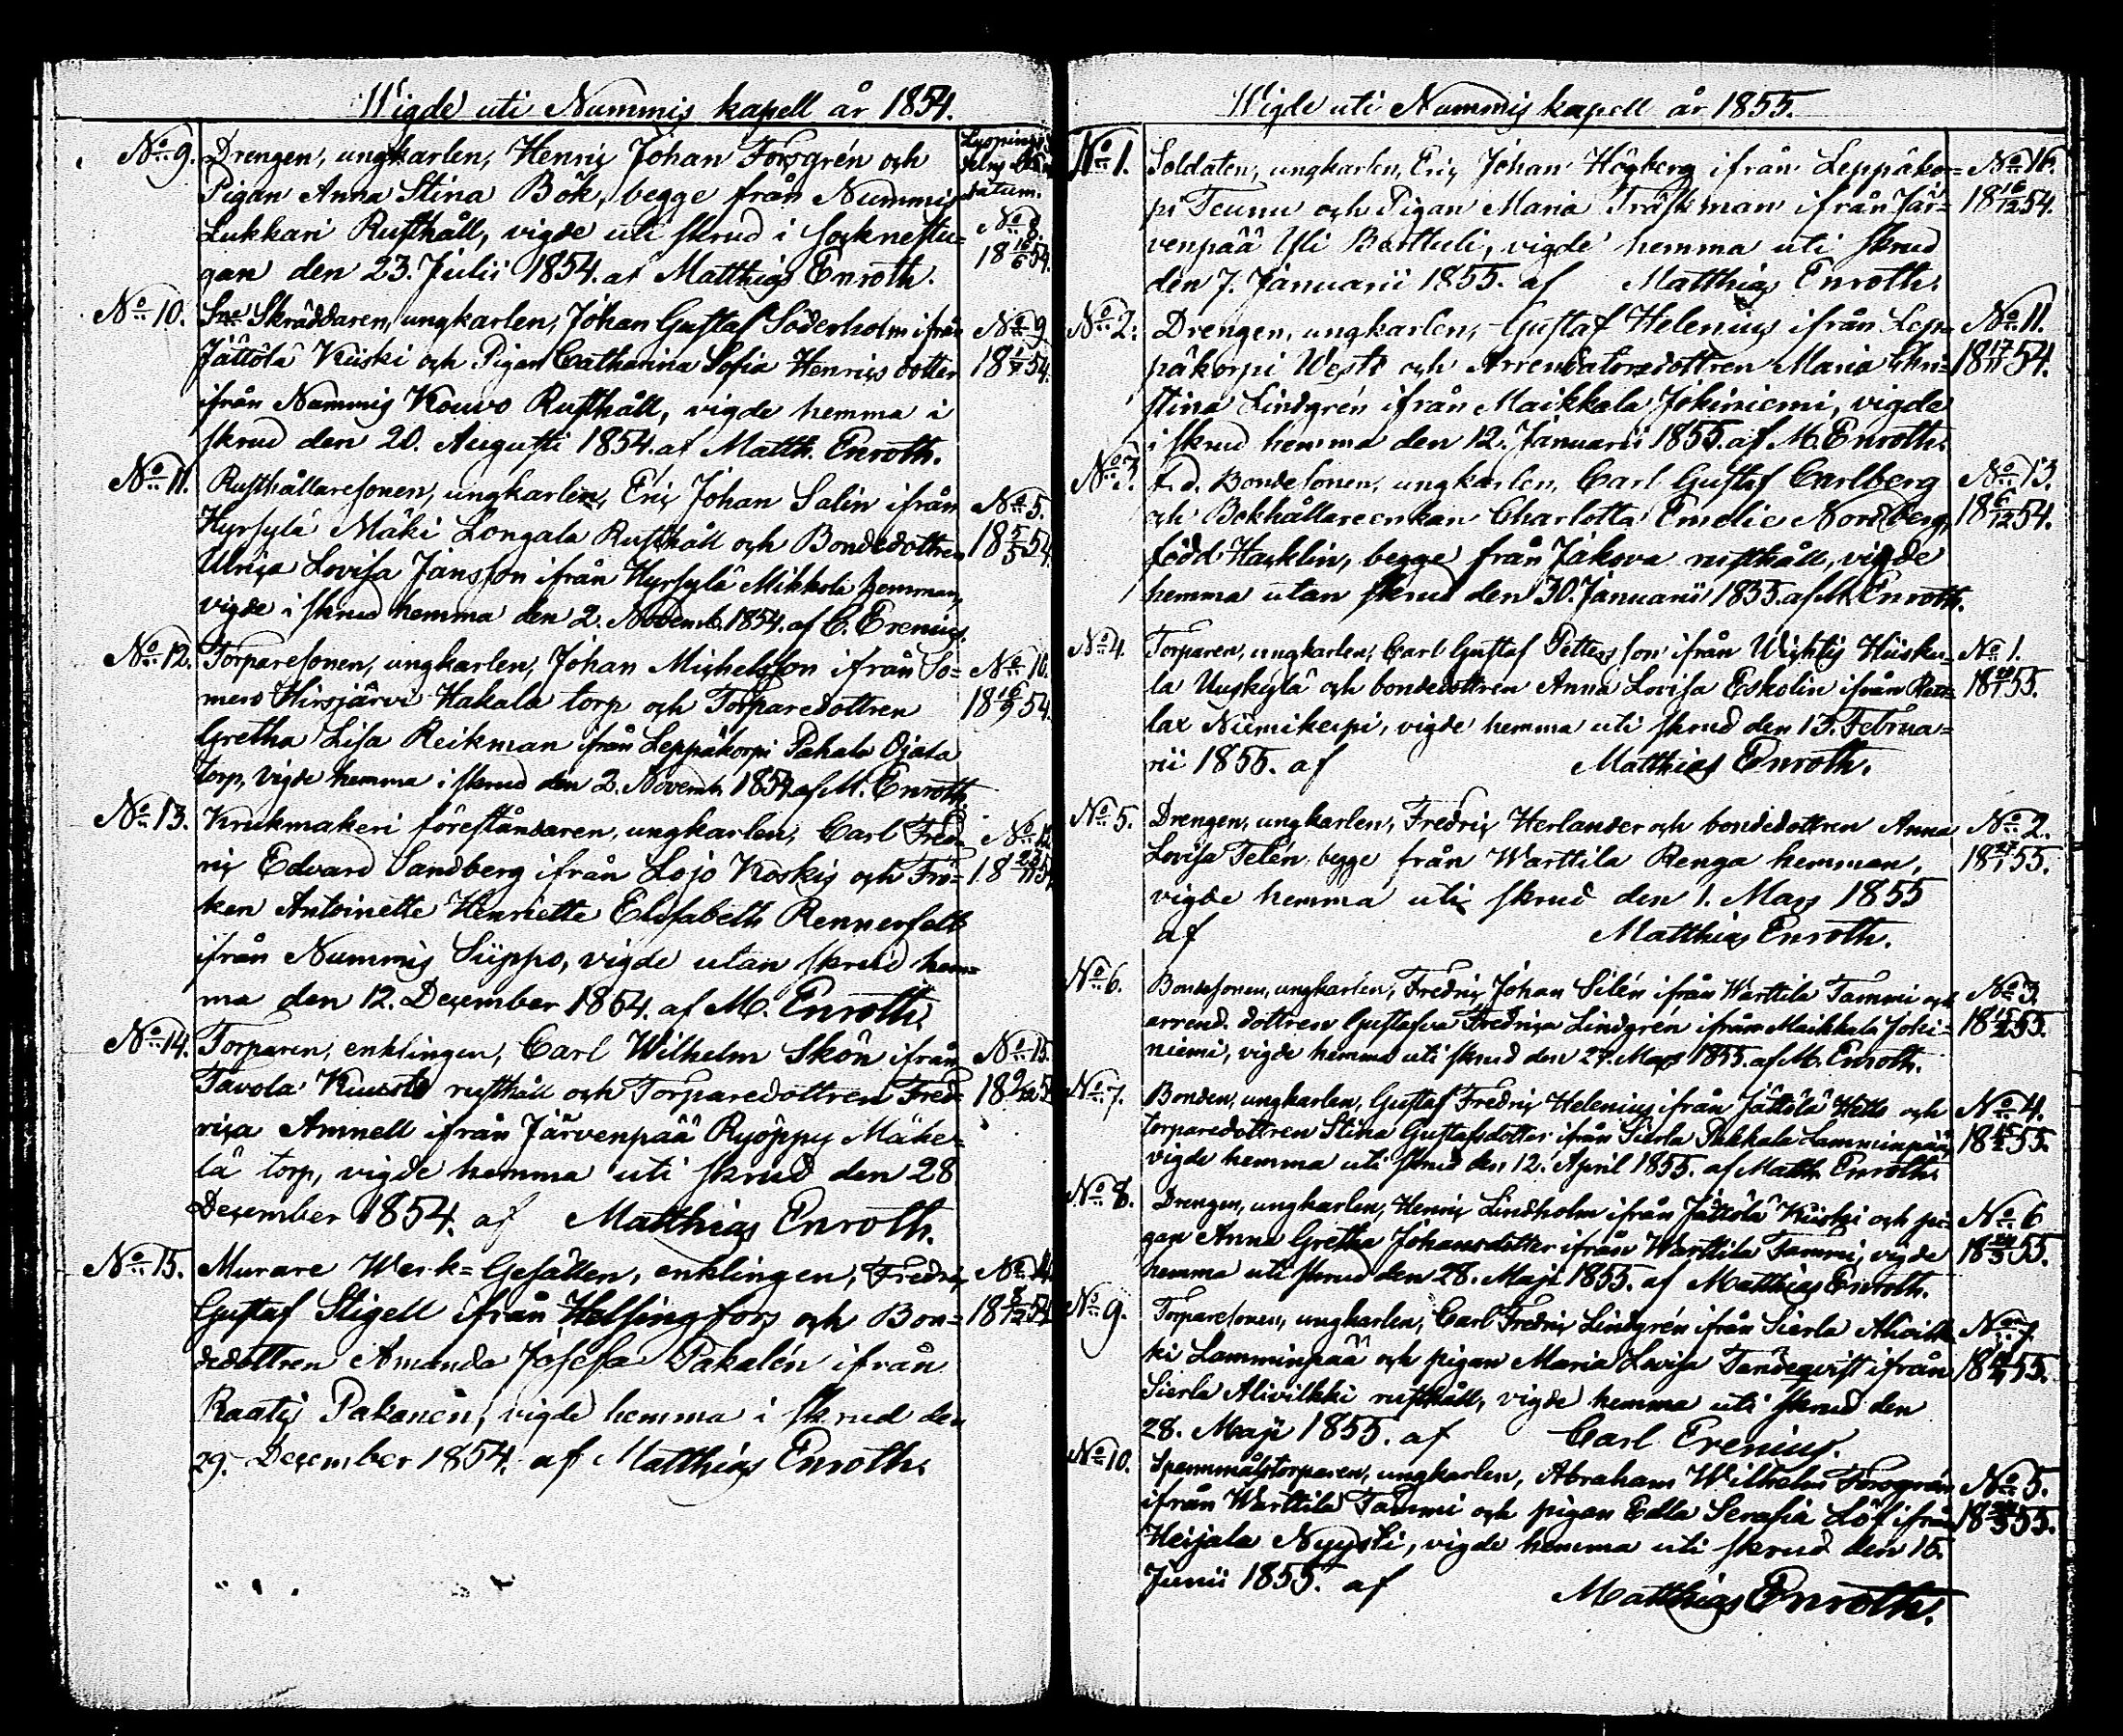 Wigde uti Nummis kapell år 1854.
Lysnings
datum.
No 9. Drengen, ungkarlen, Henric Johan Forsgrén och
Pigan Anna Stina Bök, begge från Nummis
Lukkari Rusthåll, vigde uti skrud i Socknestu-
gan den 23. Julii 1854. af Matthias Enroth.
No 8.
18 18/6 54.
No 10. Skräddaren, ungkarlen, Johan Gustaf Söderholm ifrån
Jättölä Kiiski och Pigan Catharina Sofia Henrics dotter
ifrån Nummis Kouvo Rusthåll, vigde hemma i
skrud den 20. Augusti 1854. af Matth. Enroth.
No 9
18 54.
No 11. Rusthållaresonen, ungkarlen, Eric Johan Salin ifrån
Hyrsylä Mäki Longala Rusthåll och Bondedottren
Ulrica Lovisa Jansson ifrån Hyrsylä Mikkola hemman,
vigde i skrud hemma den 2. Novemb. 1854. af C. Erenius.
No 5.
18 5/5 54
No 12. Torparesonen, ungkarlen, Johan Michelsson ifrån So-
mero Hirsjärvi Hakala torp och Torparedottren
Gretha Lisa Reikman ifrån Leppäkorpi Pahala Ojala
torp, vigde hemma i skrud den 2. Novemb. 1854. af M. Enroth.
No 10.
18 54.
No 13. Krukmakeri föreståndaren, ungkarlen, Carl Fred-
ric Edvard Sandberg ifrån Lojo Koskis och Frö-
ken Antoinette Henriette Elisabeth Rennerfelt
ifrån Nummis Siippo, vigde utan skrud hem-
ma den 12. December 1854. af M. Enroth.
No 12.
No 14. Torparen, enklingen, Carl Wilhelm Skön ifrån
Tavola rusthåll och Torparedottren Fred-
rica Amnell ifrån Järvenpää Ryöppy Mäke-
lä torp, vigde hemma uti skrud den 28
December 1854. af Matthias Enroth.
No 15.
No 15. Murare Werk-Gesällen, enklingen, Fredric
Gustaf Stigell ifrån Helsingfors och Bon-
dedottren Amanda Josefa Pakalén ifrån
Raatis Pakanen, vigde hemma i skrud den
29. December 1854. af Matthias Enroth.
No 14.
18 8/12 54
Wigde uti Nummis kapell år 1855.
No 1. Soldaten, ungkarlen, Eric Johan Högberg ifrån Leppäkor-
pi Teunu och Pigan Maria Träskman ifrån Jär-
venpää Yli Berttuli, vigde hemma uti skrud
den 7. Januarii 1855. af Matthias Enroth.
No 16.
18 16/12 54.
No 2. Drengen, ungkarlen, Gustaf Helenius ifrån Lep-
päkorpi Westi och Arrendatorsdottren Maria Chri-
stina Lindgrén ifrån Maikkala Jokiniemi, vigde
i skrud hemma den 12. Januarii 1855. af M. Enroth.
No 11.
18 17/11 54.
No 3. F.d. Bondesonen, ungkarlen, Carl Gustaf Carlberg
och Bokhållareenkan Charlotta Emelie Nordberg,
född Hacklin, begge från Jakova rusthåll, vigde
hemma utan skrud den 30. Januarii 1855. af M. Enroth.
No 13.
18 6/12 54.
No 4. Torparen, ungkarlen, Carl Gustaf Pettersson ifrån Wichtis Hiisku-
la Uuskylä och bondedottren Anna Lovisa Eskolin ifrån
Niemikerpi, vigde hemma uti skrud den 13. Februa-
rii 1855. af Matthias Enroth.
No 1.
18 55.
No 5. Drengen, ungkarlen, Fredric Herlander och bondedottren Anna
Lovisa Telén begge från Warttila Renga hemman,
vigde hemma uti skrud den 1. Mars 1855
af Matthias Enroth.
No 2.
18 27/1 55.
No 6. Bondesonen, ungkarlen, Fredric Johan Silén ifrån Warttila Tammi och
arrend. dottren Gustafva Fredrica Lindgrén ifrån Maikkala Joki-
niemi, vigde hemma uti skrud den 27. Mars 1855. af M. Enroth.
No 3.
18 55.
No 7. Bonden, ungkarlen, Gustaf Fredric Helenius ifrån Jättölä Heto och
torparedottren Stina Gustafsdotter ifrån Sierla Pakkala Lamminpää,
vigde hemma uti skrud den 12. April 1855. af Matth. Enroth.
No 4.
18 55.
No 8. Drengen, ungkarlen, Henric Lindholm ifrån Jättölä Kiiski och pi-
gan Anna Gretha Johansdotter ifrån Warttila Tammi, vigde
hemma uti skrud den 28. Maji 1855. af Matthias Enroth.
No 6
18 55.
No 9. Torparesonen, ungkarlen, Carl Fredric Lindgrén ifrån Sierla Alivilk-
ki Lamminpää och pigan Maria Lovisa Tandeqvist ifrån
Sierla Alivilkki rusthåll, vigde hemma uti skrud den
28. Maji 1855. af Carl Erenius.
No 7.
18 55.
No 10. Spannmålstorparen, ungkarlen, Abraham Wilhelm Forsgrén
ifrån Warttila Tammi och pigan Edla Serafia Löf ifrån
Heijala Nyysti, vigde hemma uti skrud den 15.
Junii 1855. af Matthias Enroth.
No 5.
18 55.